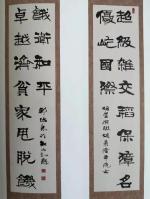 超級雜交稻保障名
優屹國際
卓越濟貧家甩脫饑
餓衛和平